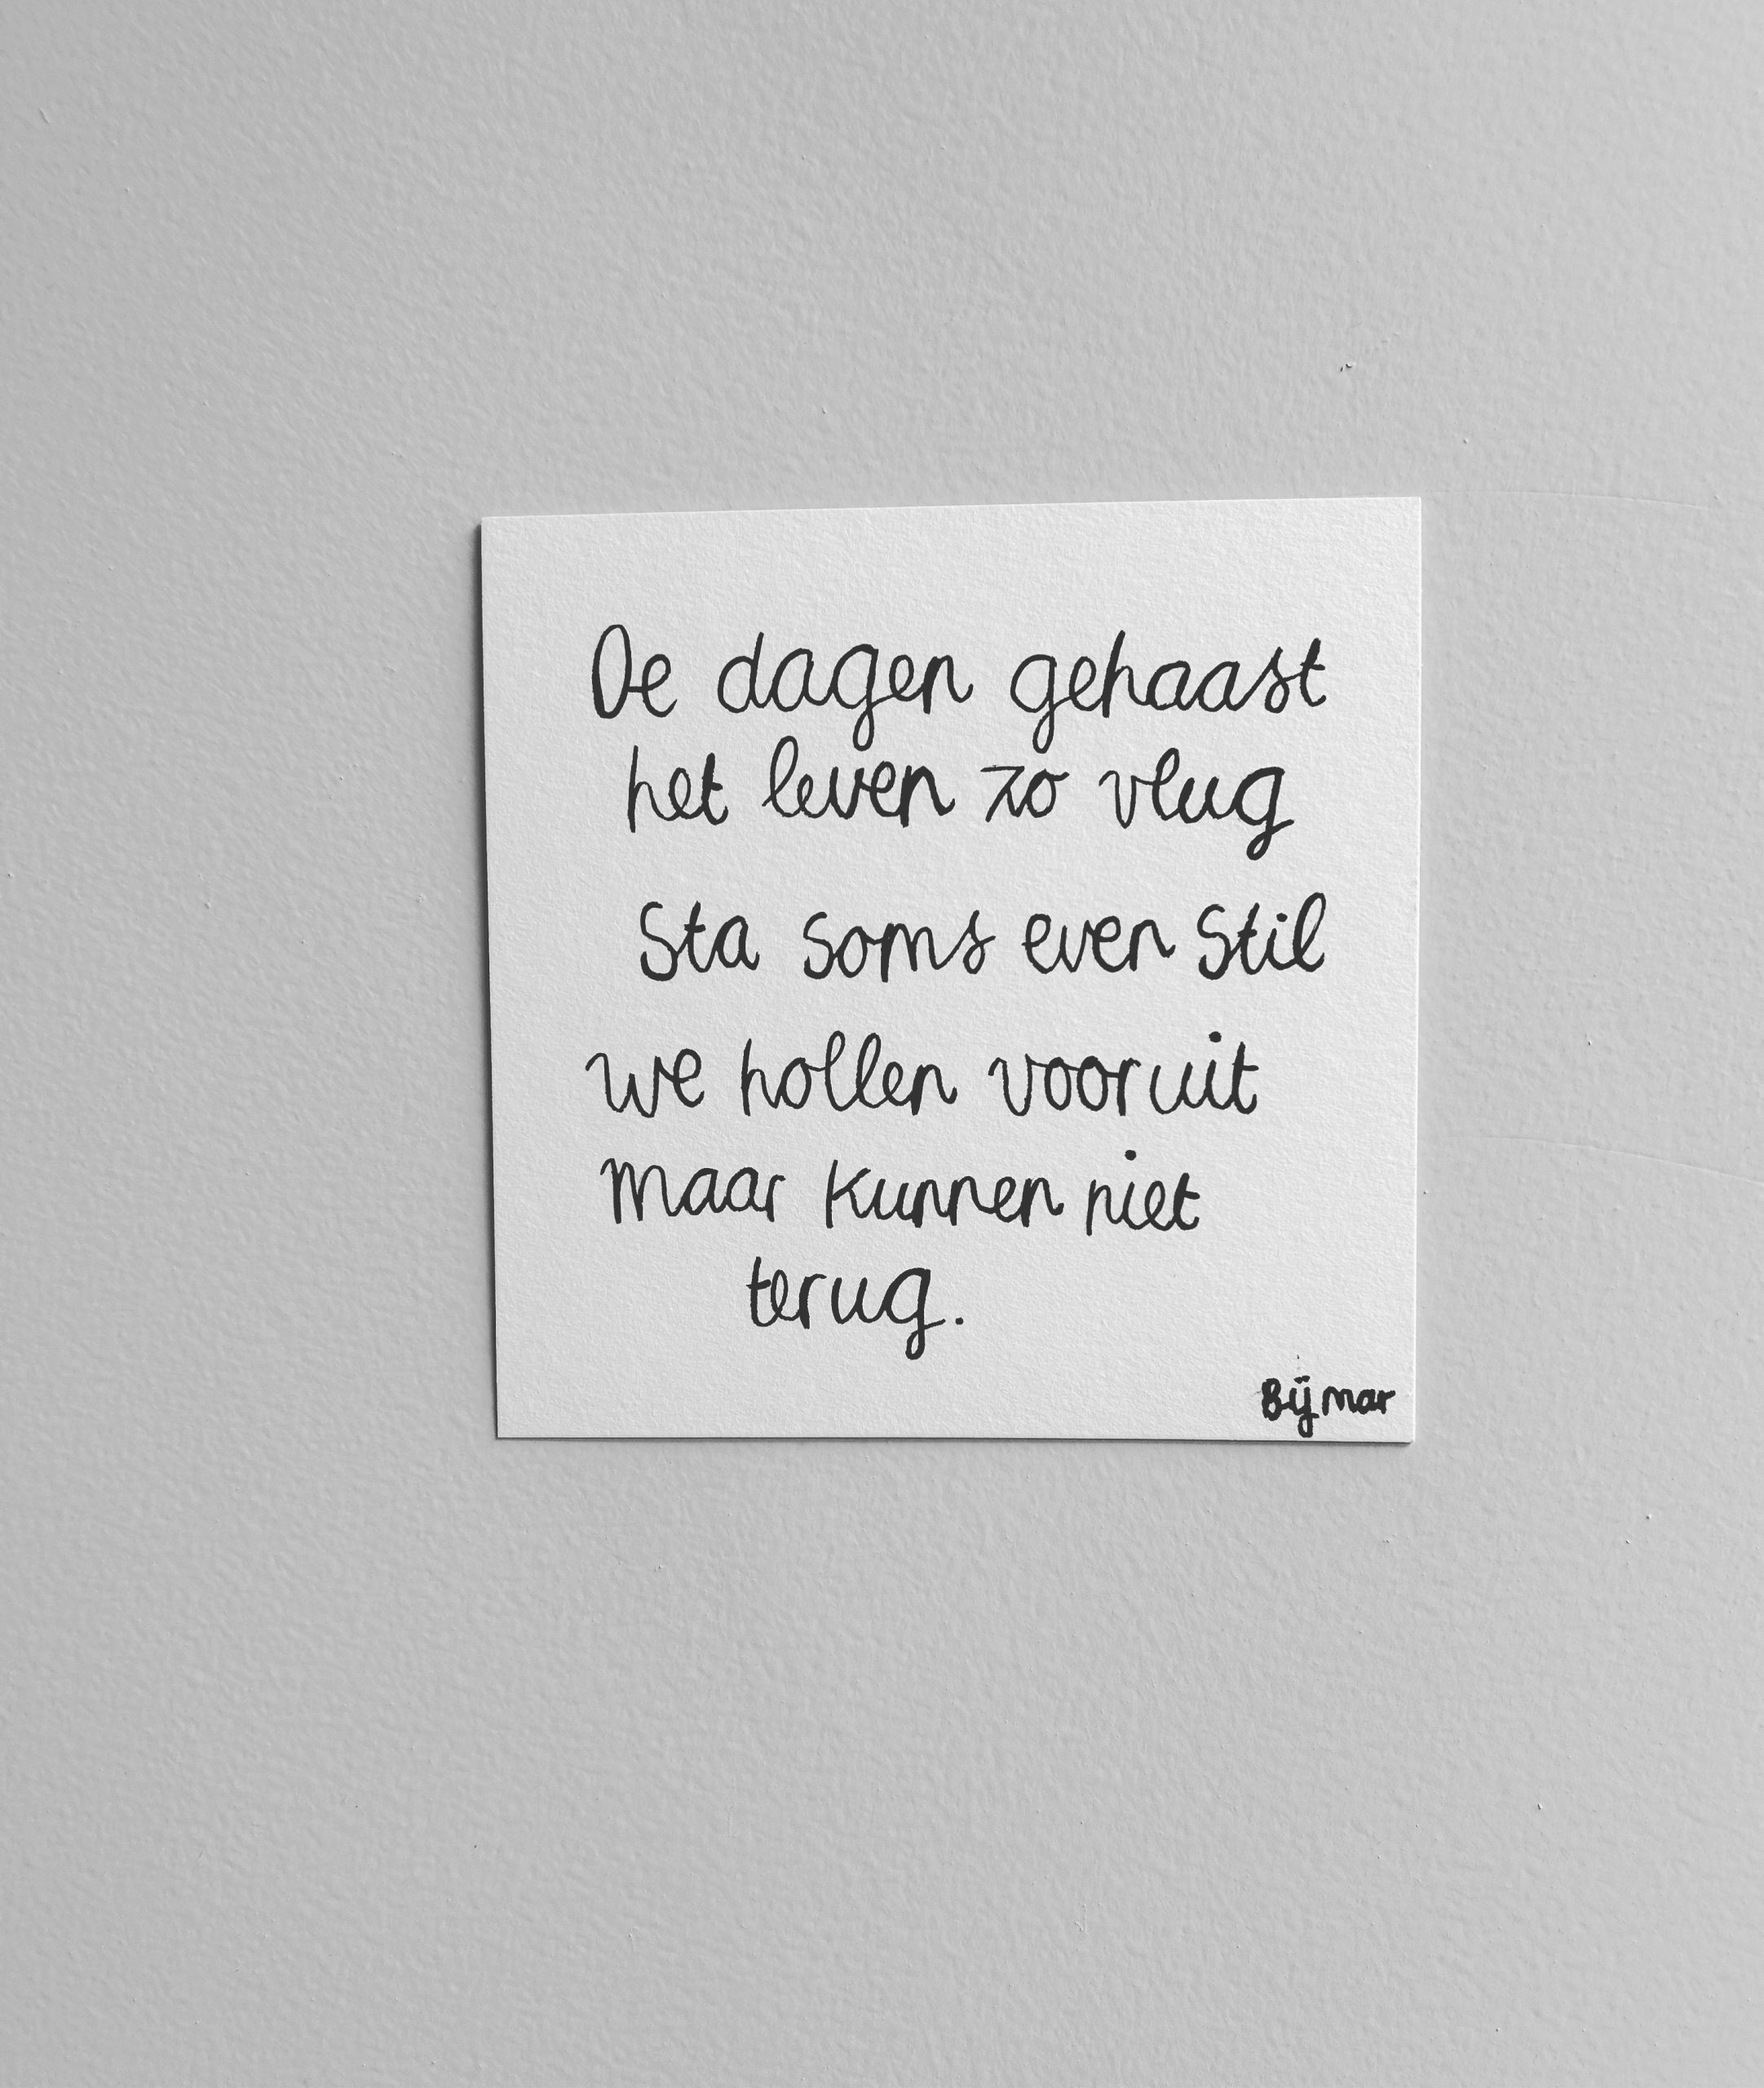 De dagen gehaast
het leven zo vlug
Sta soms even stil
we hollen vooruit
maar kunnen niet
terug.
Bij mar